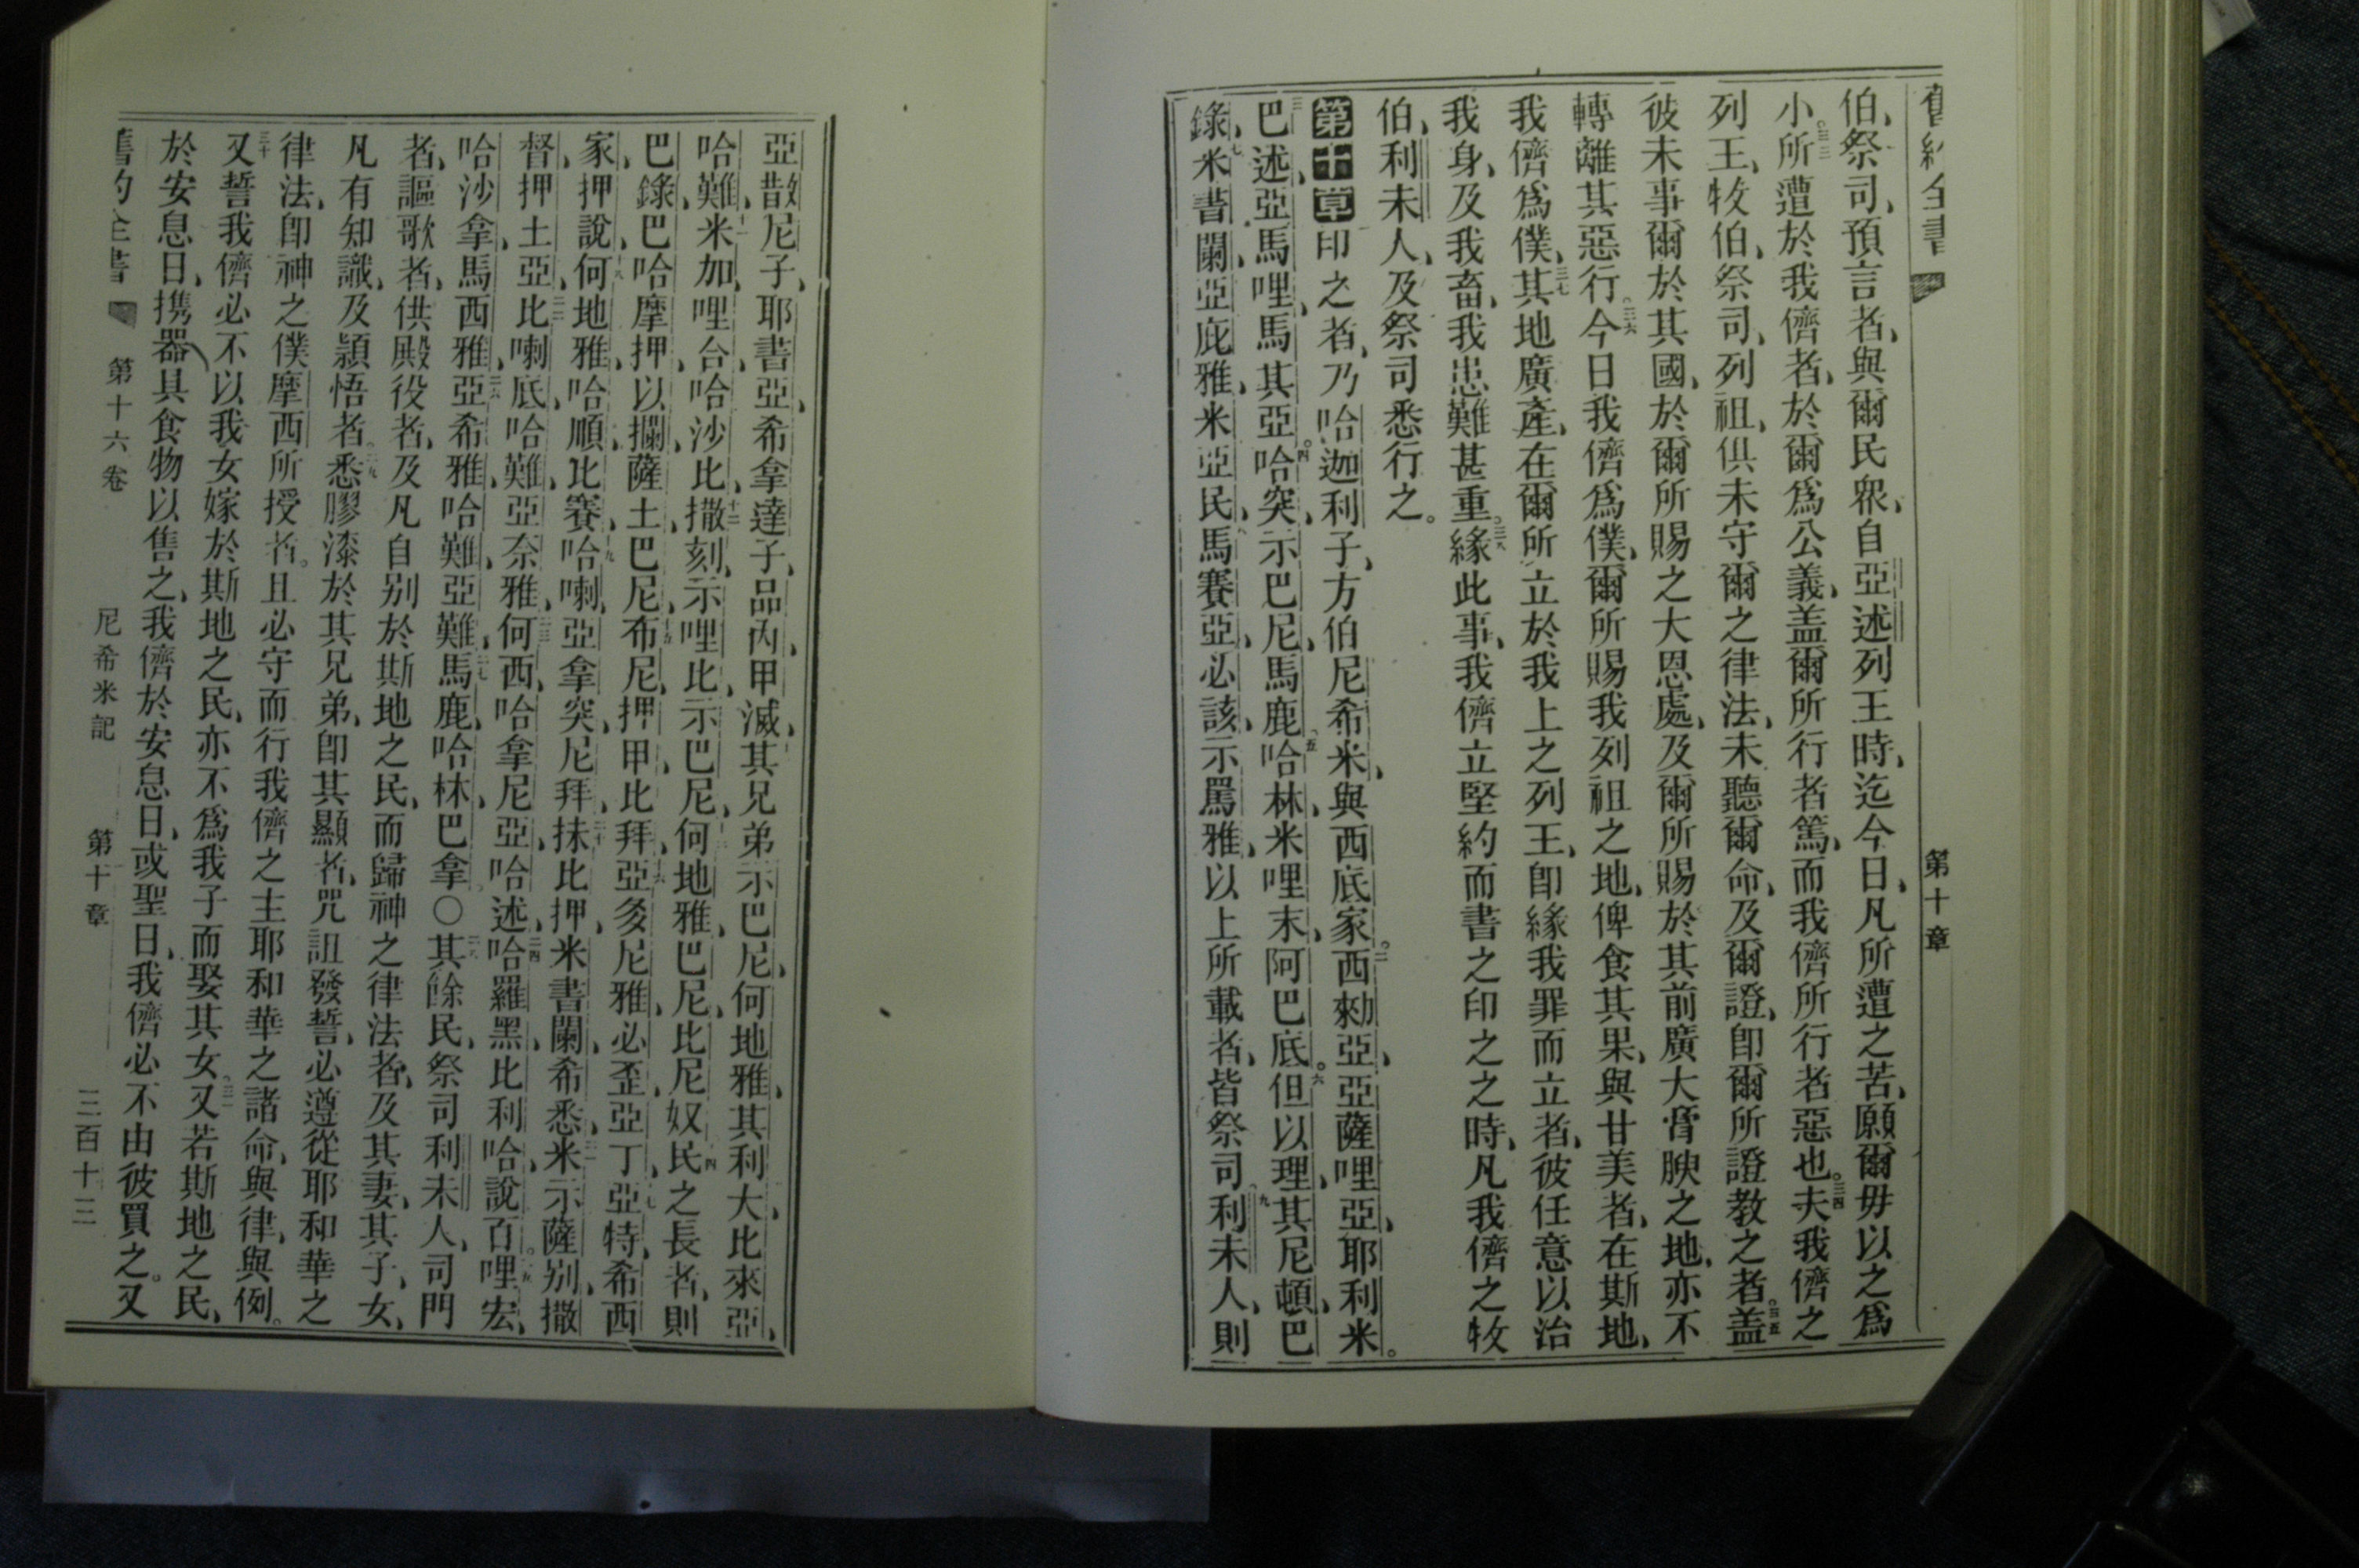 舊約全書 第十章
伯、祭司、預言者、與爾民衆、自亞述列王時、迄今日、凡所遭之苦、願爾毋以之爲
小。三三所遭於我儕者、於爾爲公義、蓋爾所行者篤、而我儕所行者惡也。三四夫我儕之
列王、牧伯、祭司、列祖、俱未守爾之律法、未聽爾命、及爾證、卽爾所證教之者。三五蓋
彼未事爾於其國、於爾所賜之大恩處、及爾所賜於其前廣大膏腴之地、亦不
轉離其惡行。三六今日我儕爲僕、爾所賜我列祖之地、俾食其果、與甘美者、在斯地、
我儕爲僕、三七其地廣產、在爾所立於我上之列王、卽緣我罪而立者、彼任意以治
我身、及我畜、我患難甚重。三八緣此事、我儕立堅約而書之印之之時、凡我儕之牧
伯、利未人、及祭司悉行之。
第十章 印之者、乃哈迦利子、方伯尼希米、與西底家。二西勑亞、亞薩哩亞、耶利米。
三巴述、亞馬哩、馬其亞。四哈突、示巴尼、馬鹿、五哈林、米哩末、阿巴底。六但以理、其尼頓、巴
錄、七米書闌、亞庇雅、米亞民、八馬賽亞、必該、示罵雅、以上所載者、皆祭司、九利未人、則
亞散尼子、耶書亞、希拿達子、品內、甲滅、其兄弟示巴尼、何地雅、其利大、比來亞、
哈難、十一米加、哩合、哈沙比、十二撒刻、示哩比、示巴尼、何地雅、巴尼、比尼奴、十四民之長者、則
巴錄、巴哈摩押、以攔、薩土、巴尼、十五布尼、押甲、比拜、十六亞多尼雅、必歪、亞丁、十七亞特、希西
家、押說、十八何地雅、哈順、比賽、十九哈喇、亞拿突、尼拜、二十抹比押、米書闌、希悉、二一米示薩別、撒
督、押土亞、二二比喇底、哈難、亞奈雅、二三何西、哈拿尼亞、哈述、二四哈羅黑、比利哈、說百、二五哩宏、
哈沙拿、馬西雅、二六亞希雅、哈難、亞難、二七馬鹿、哈林、巴拿。〇二八其餘民、祭司、利未人、司門
者、謳歌者、供殿役者、及凡自别於斯地之民、而歸神之律法者、及其妻、其子、女、
凡有知識、及頴悟者。二九悉膠漆於其兄弟、卽其顯者、咒詛發誓、必遵從耶和華之
律法、卽神之僕摩西所授者。且必守而行我儕之主耶和華之諸命、與律、與例。
三十又誓我儕必不以我女嫁於斯地之民、亦不爲我子而娶其女。三一又若斯地之民、
於安息日、携器具食物以售之、我儕於安息日、或聖日、我儕必不由彼買之。又
舊約全書 第十六卷 尼希米記 第十章 三百十三